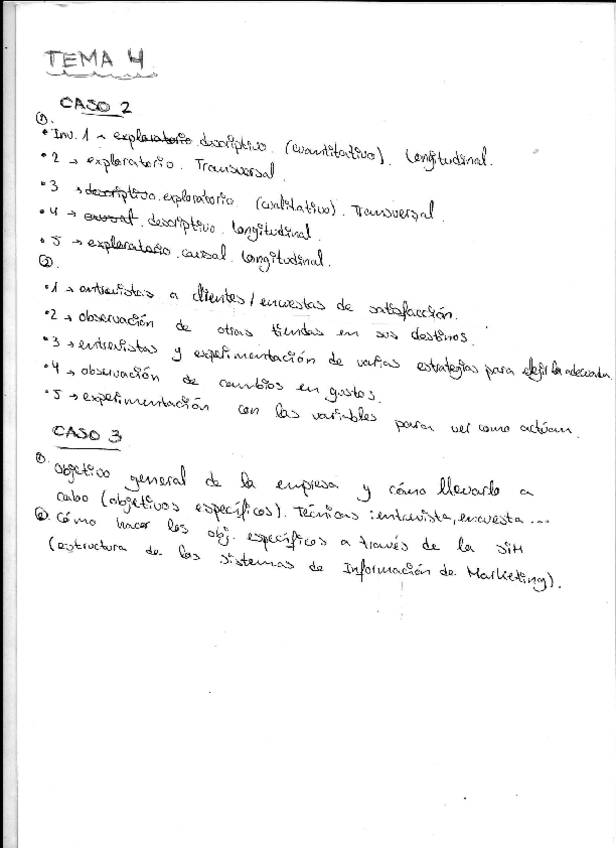 TEMA 4
CASO 2
①
• Inv. 1 → exploratorio descriptivo (cuantitativo). Longitudinal.
• 2 → exploratorio. Transversal.
• 3 → descriptivo exploratorio (cualitativo). Transversal.
• 4 → causal. descriptivo. longitudinal.
• 5 → exploratorio causal. longitudinal.
②.
• 1 → entrevistas a clientes / encuestas de satisfacción.
• 2 → observación de otras tiendas en sus destinos.
• 3 → entrevistas y experimentación de varias estrategias para elegir la adecuada.
• 4 → observación de cambios en gustos.
• 5 → experimentación con las variables para ver como actúan.
CASO 3
①. Objetivo general de la empresa y cómo llevarlo a
cabo (objetivos específicos). Técnicas: entrevista, encuesta...
② Cómo hacer los obj. específicos a través de la SIM
(estructura de los sistemas de Información de Marketing).